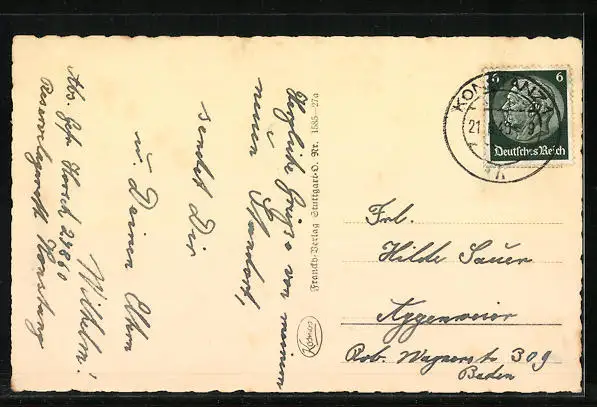 Herzliche Grüsse von meinem
neuen Standort,
sendet Dir
u. Deinen Eltern
Wilhelm!
Abs. Gefr. Horsch 24860
Reservelazarett Konstanz
Franckh-Verlag Stuttgart-O. Nr. 1585-27a
Kosmos
KONSTANZ
21.
6 6
Deutsches Reich
Frl.
Hilde Sauer
Appenweier
Rob. Wagnerstr 309
Baden